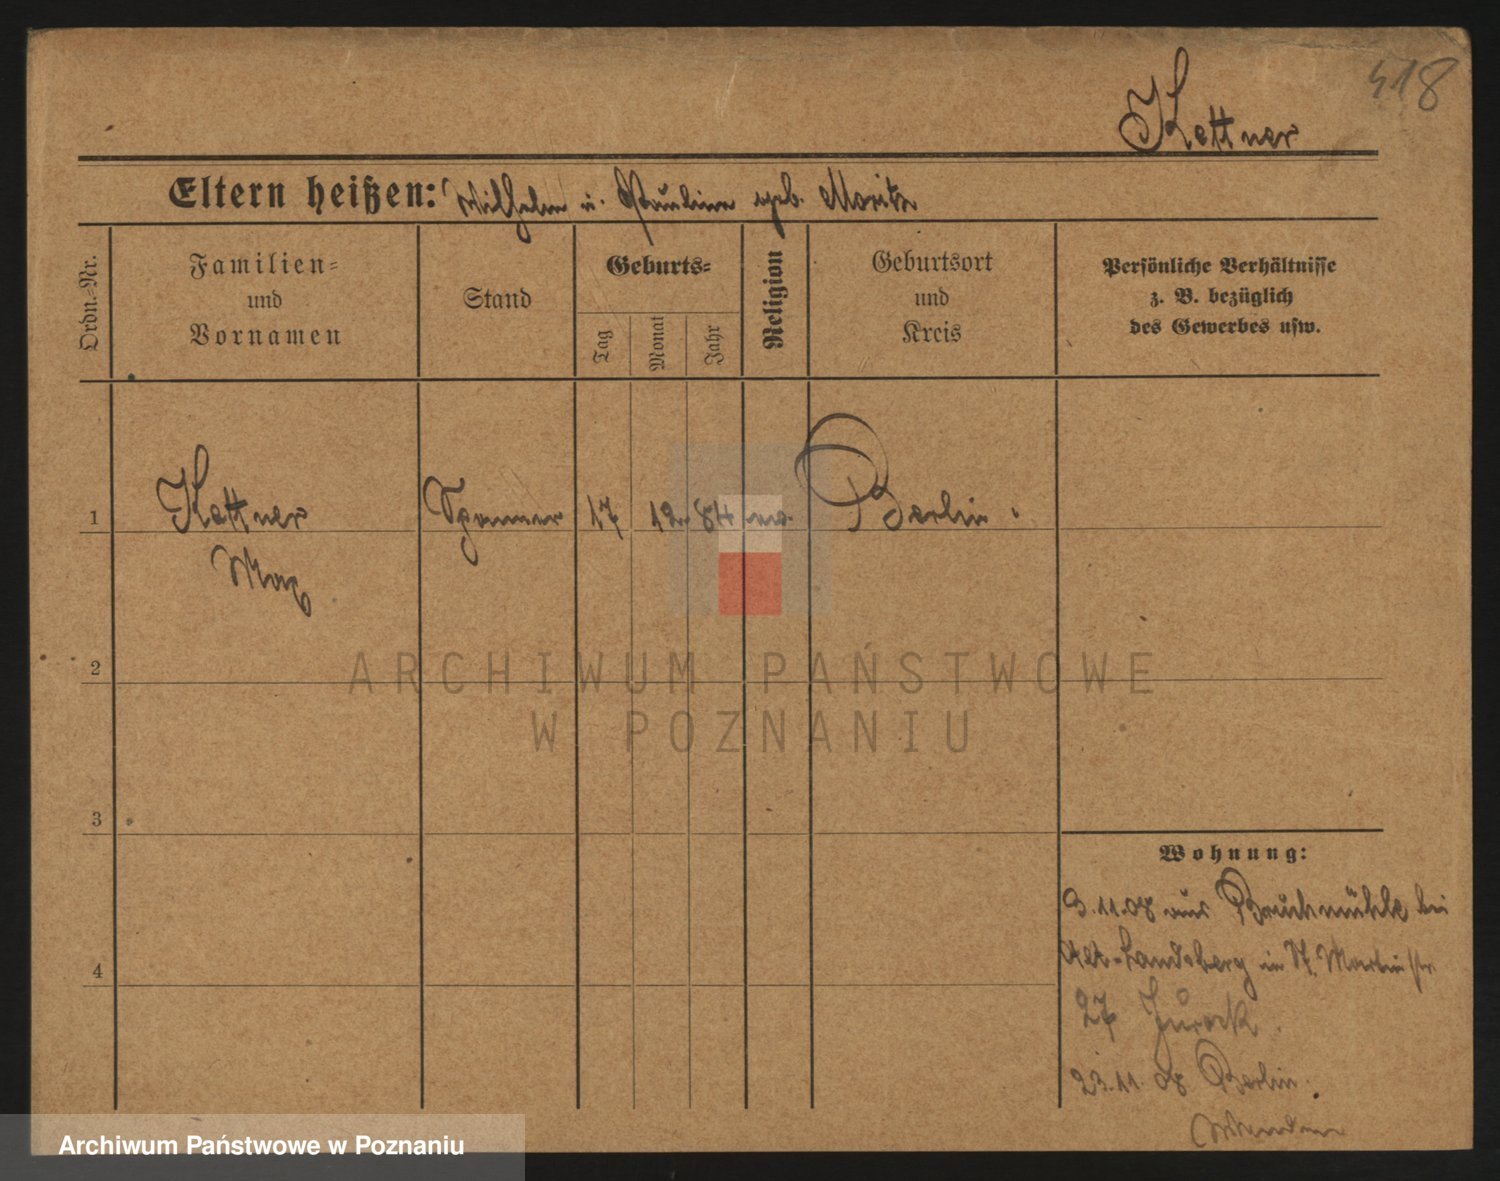 418
Kettner
Eltern heißen: Wilhelm u. Pauline geb. Moritz
Ordn.-Nr.
Familien-
und
Vornamen
Stand
Geburts-
Tag
Monat
Jahr
Religion
Geburtsort
und
Kreis
Persönliche Verhältnisse
z. B. bezüglich
des Gewerbes usw.
1 Kettner 17 12. 84 Berlin.
Max
2
ARCHIWUM PAŃSTWOWE
W POZNANIU
3
Wohnung:
3.11.08 aus Bruchmühle bei
Alt-Landsberg in St. Martinstr.
4
27
23.11.08 Berlin.
Archiwum Państwowe w Poznaniu